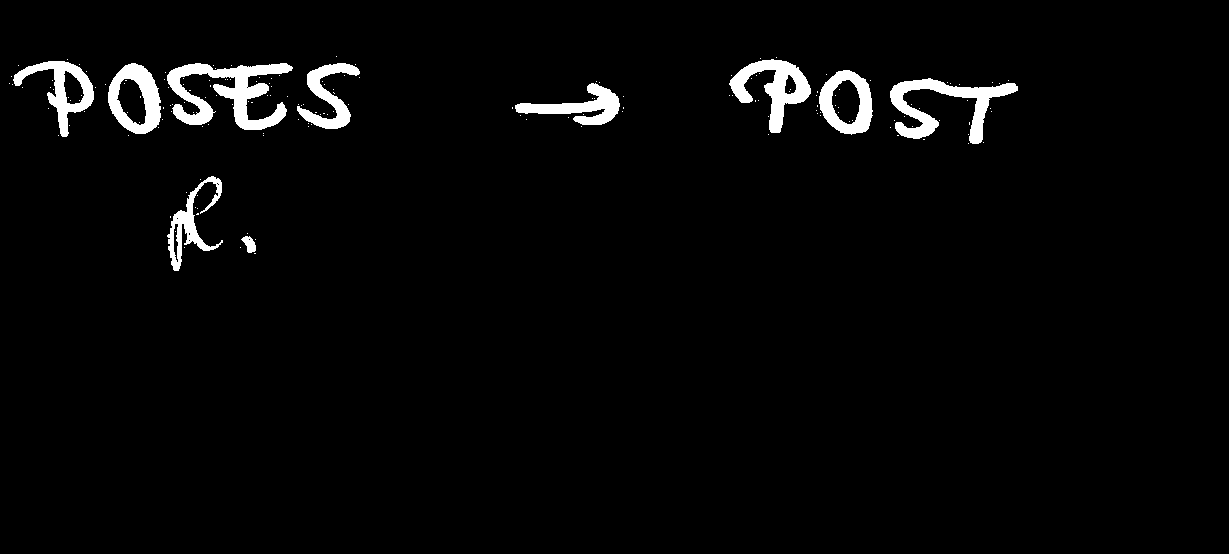 POSES → POST
pl.